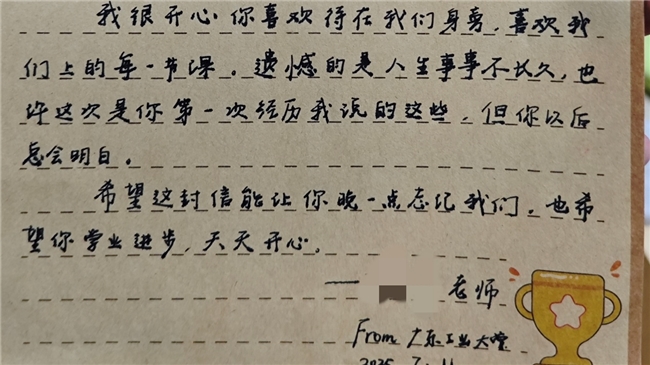 我很开心你喜欢待在我们身旁，喜欢我
们上的每一节课。遗憾的是人生事事不长久，也
许这次是你第一次经历我说的这些，但你以后
总会明白。
希望这封信能让你晚一点忘记我们，也希
望你学业进步，天天开心。
—— 老师
From 广东工业大学
2025